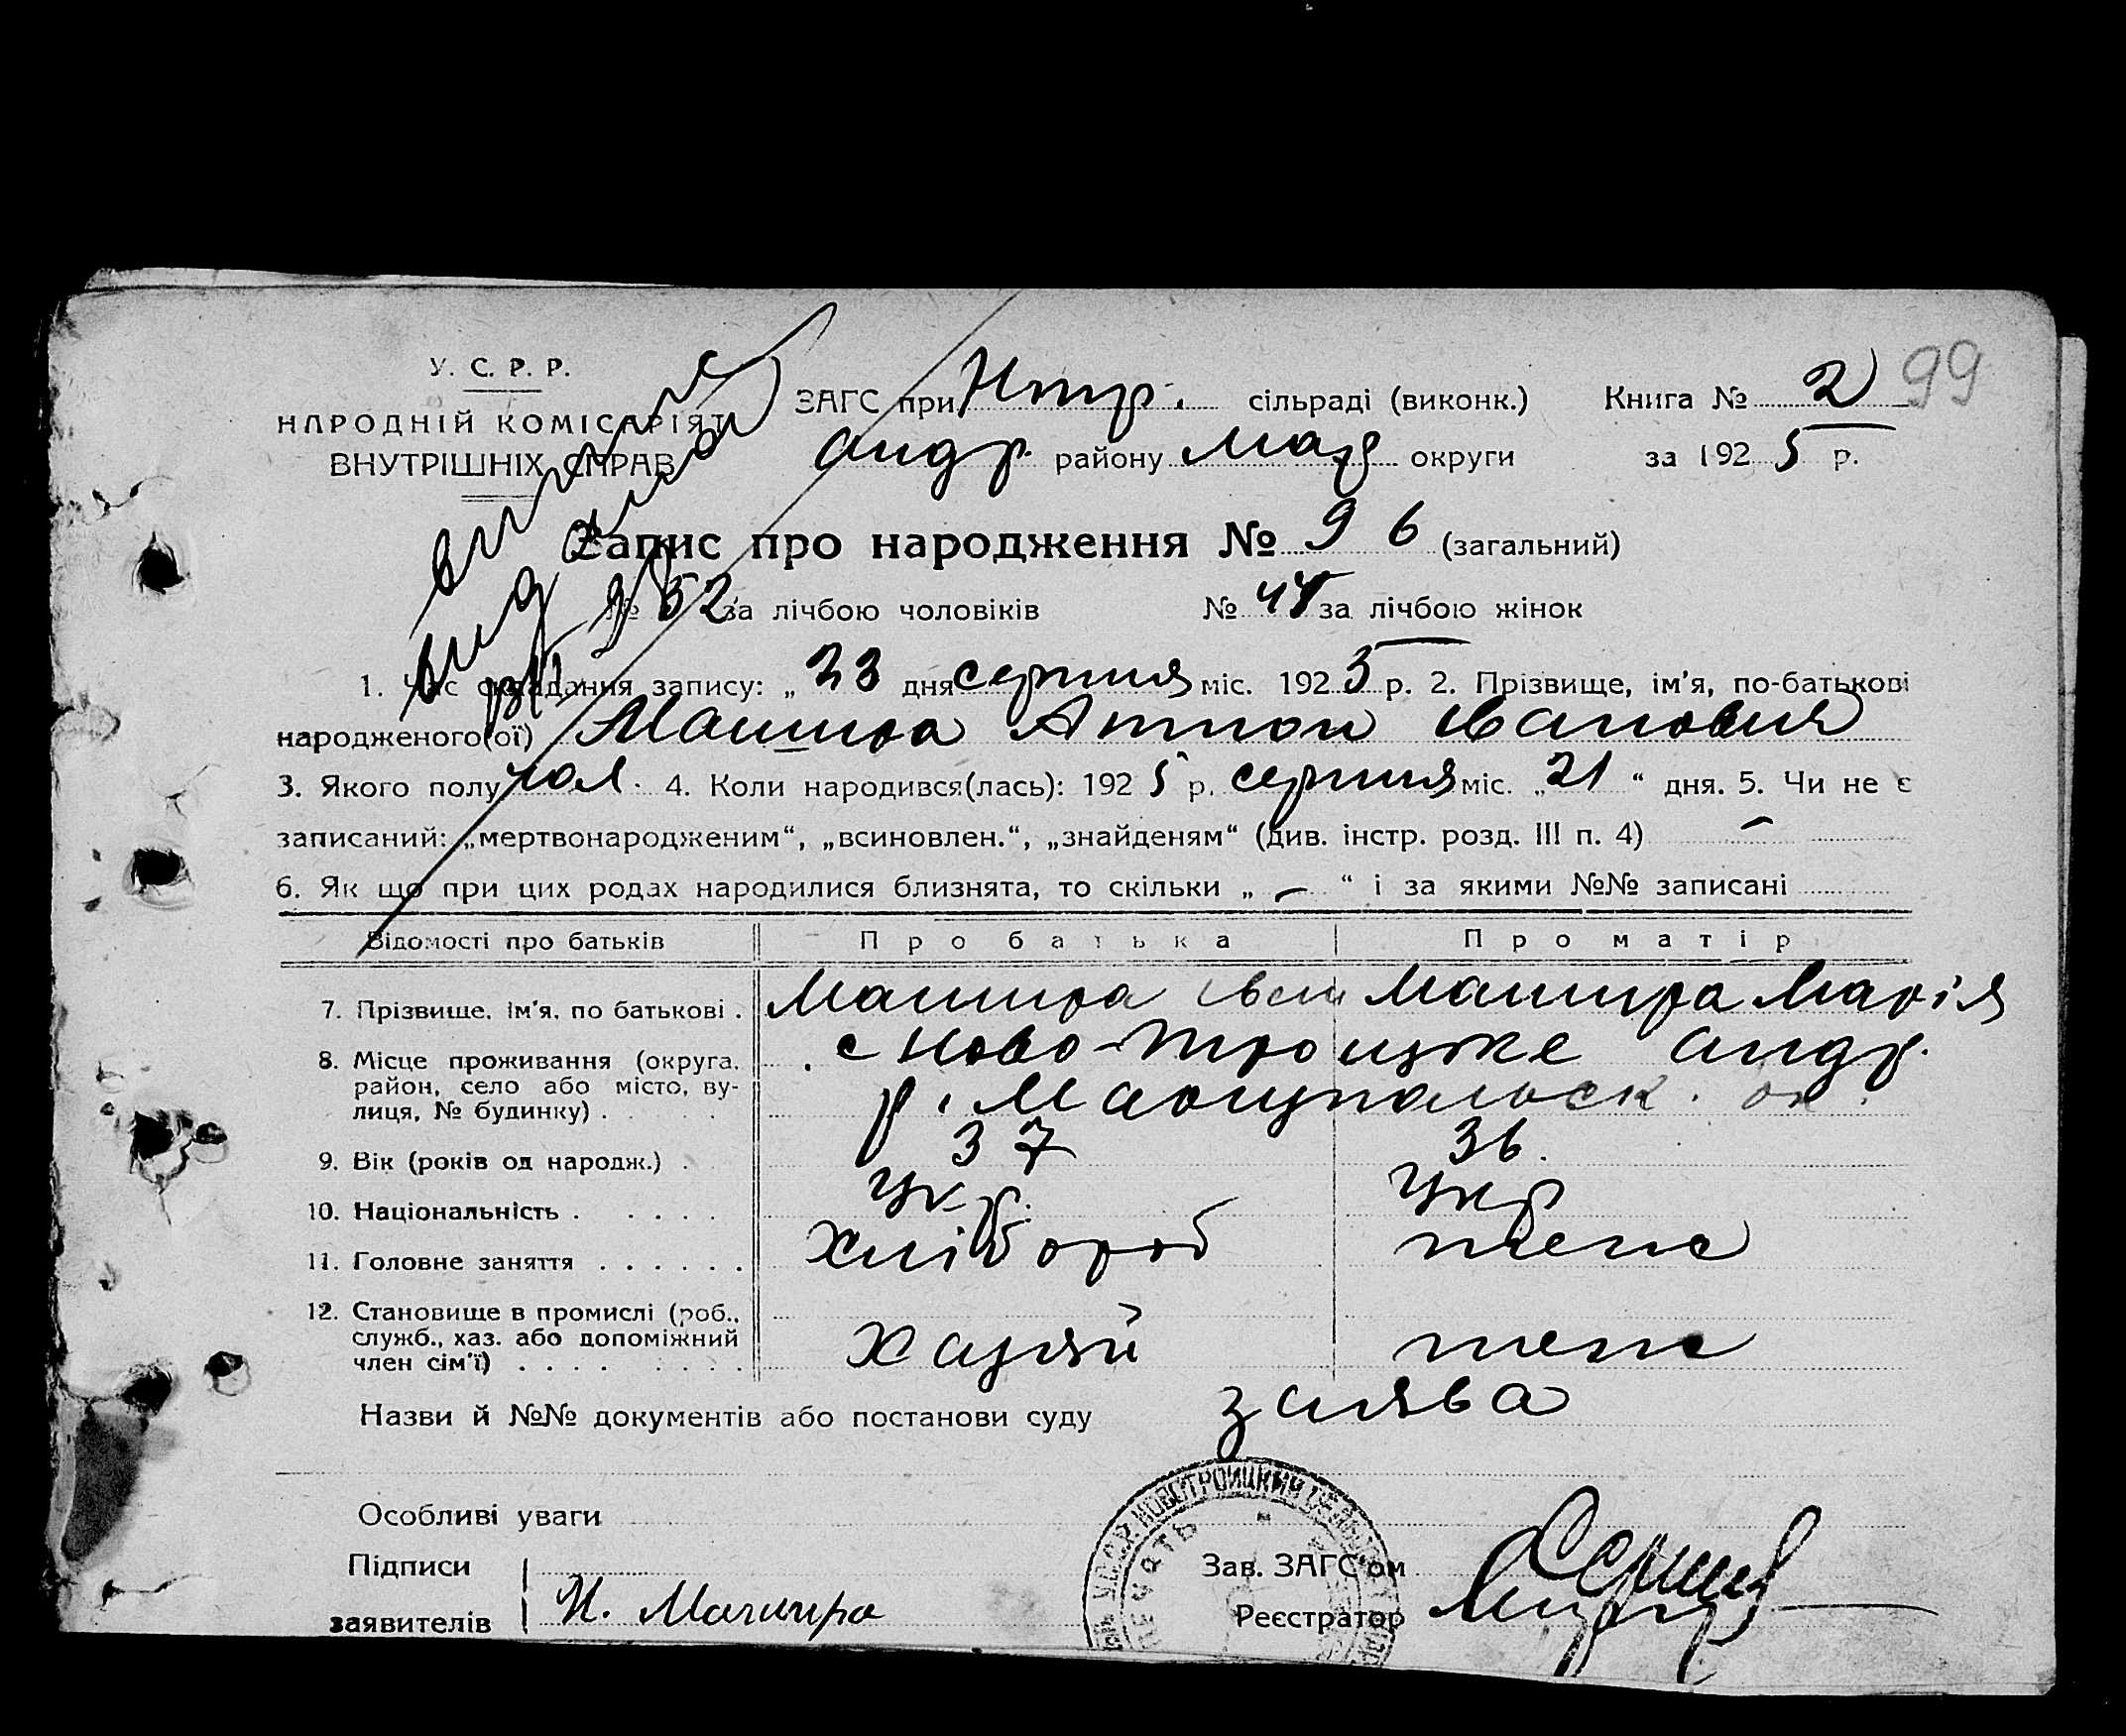 У. С. Р. Р.
НАРОДНІЙ КОМІСАРІЯТ
ВНУТРІШНІХ СПРАВ
ЗАГС при Нтр. сільраді (виконк.) Книга № 2 99
Андр. району Мар округи за 1925 р.
Запис про народження № 96 (загальний)
№ 52 за лічбою чоловіків № 44 за лічбою жінок
1. Час складання запису: „23 дня серпня міс. 1925 р. 2. Прізвище, ім'я, по-батькові
народженого(ої) Машира Антон Іванович
3. Якого полу чол. 4. Коли народився(лась): 1925 р. серпня міс. „21“ дня. 5. Чи не є
записаний: „мертвонародженим“, „всиновлен.“, „знайденям“ (див. інстр. розд. III п. 4) –
6. Як що при цих родах народилися близнята, то скільки „ – “ і за якими №№ записані
Відомості про батьків Про батька Про матір
7. Прізвище, ім'я, по батькові . Машира Іван Машира Марія
8. Місце проживання (округа, с Ново-Троицке Андр.
район, село або місто, ву-
лиця, № будинку) . р. Маріупольск. ок.
9. Вік (років од народж.) . 37 36.
10. Національність . . . . . укр. укр
11. Головне заняття . . . . . . хлібороб
12. Становище в промислі (роб.,
служб., хаз. або допоміжний хазяй
член сім'ї) . . . .
Назви й №№ документів або постанови суду заява
Особливі уваги
Підписи
заявителів И. Машира
НОВОТРОИЦКИЙ
ПЕЧАТЬ
Зав. ЗАГС'ом
Реєстратор